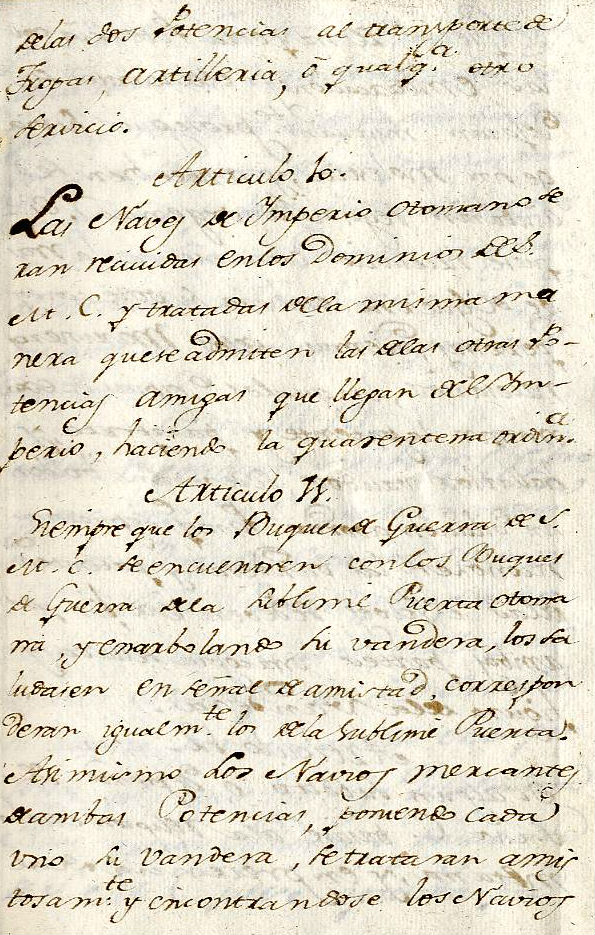 delas dos Potencias al transporte de
Tropas, artilleria, ô qualq.ª otro
servicio.
Articulo 10.
Las Naves de Imperio Otomano se
ran recividas enlos Dominios deS.
M. C. y tratadas dela misma ma
nera quese admiten las delas otras Po-
tencias amigas que llegan del Im-
perio, haciendo la quarentena ordin.ª
Articulo 11.
Siempre que los Buques de Guerra de S.
M. C. se encuentren conlos Buques
de Guerra dela Sublime Puerta otoma
na, y enarbolando su vandera, los sa
ludasen en señal de amistad, correspon
deran igualm.te los dela Sublime Puerta.
Asi mismo Los Navios mercantes
deambas Potencias, poniendo cada
uno su vandera, se trataran amis
tosam.te y encontrandose los Navios